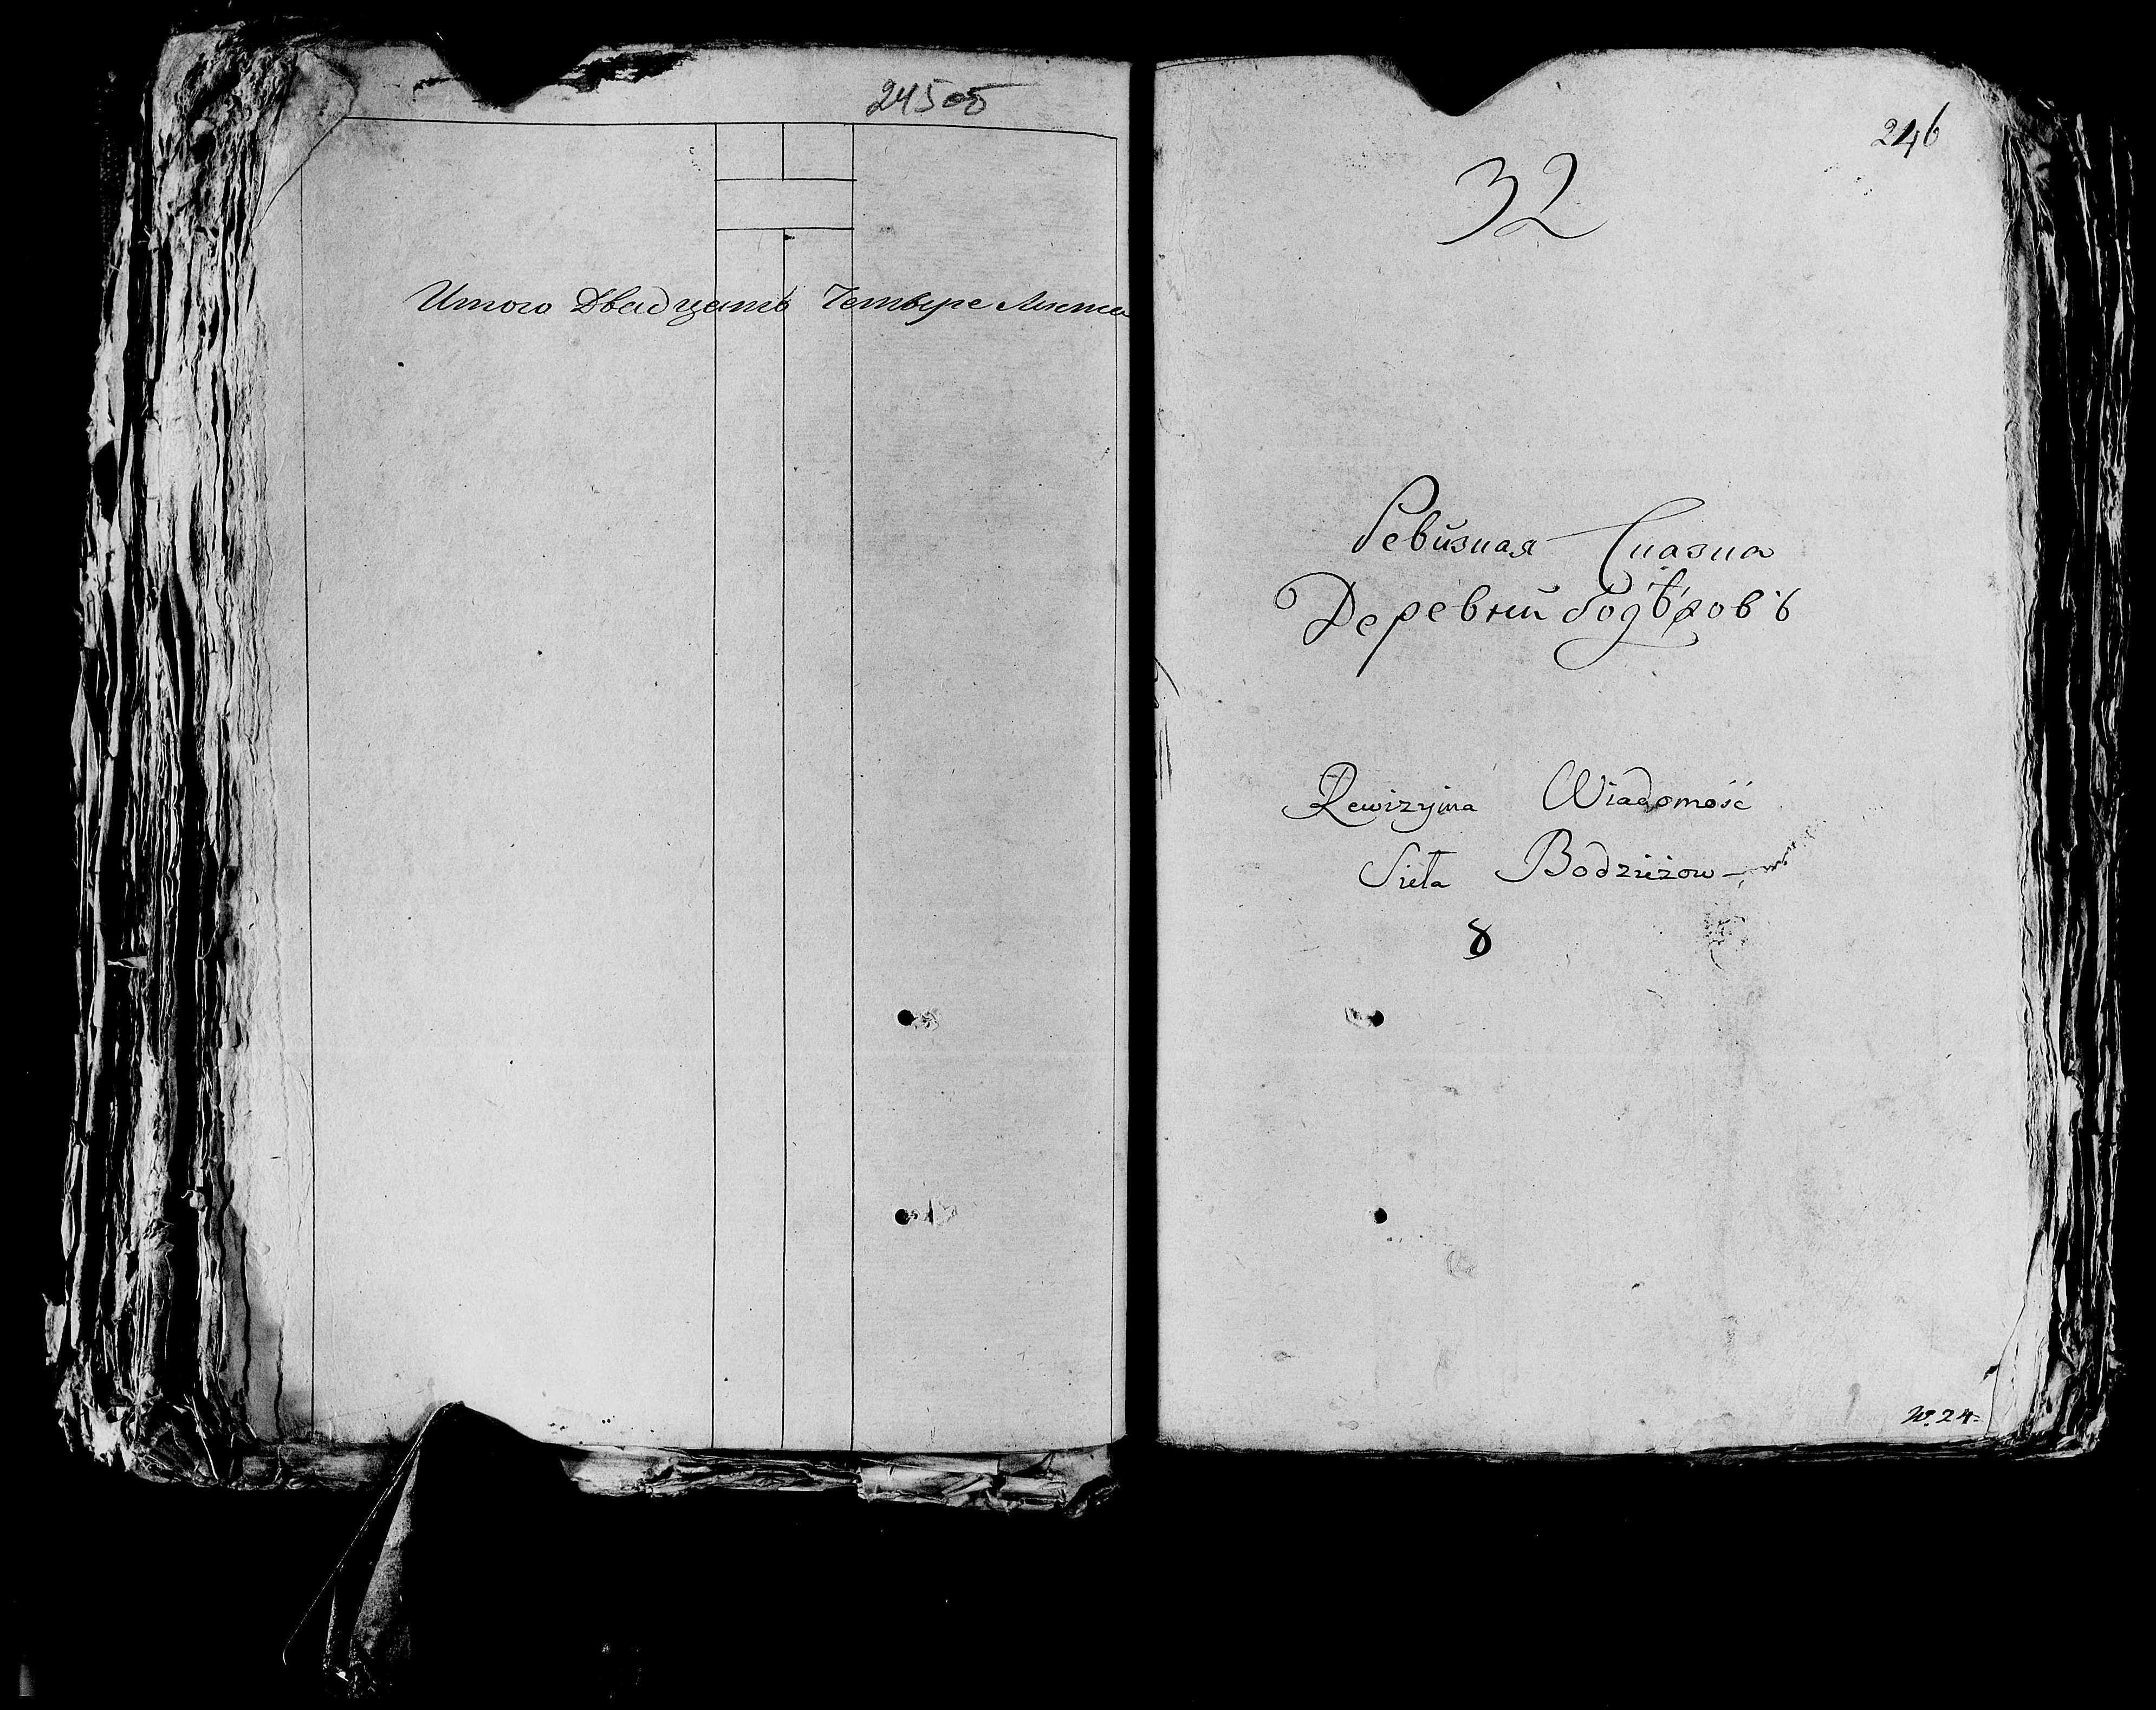 245об
Итого Двадцать Четыре Листа
246
32
Ревизная Сказка
Деревни Бодѣжовъ
Rewizyina Wiadomość
Sieła Bodzieżow
8
№ 24